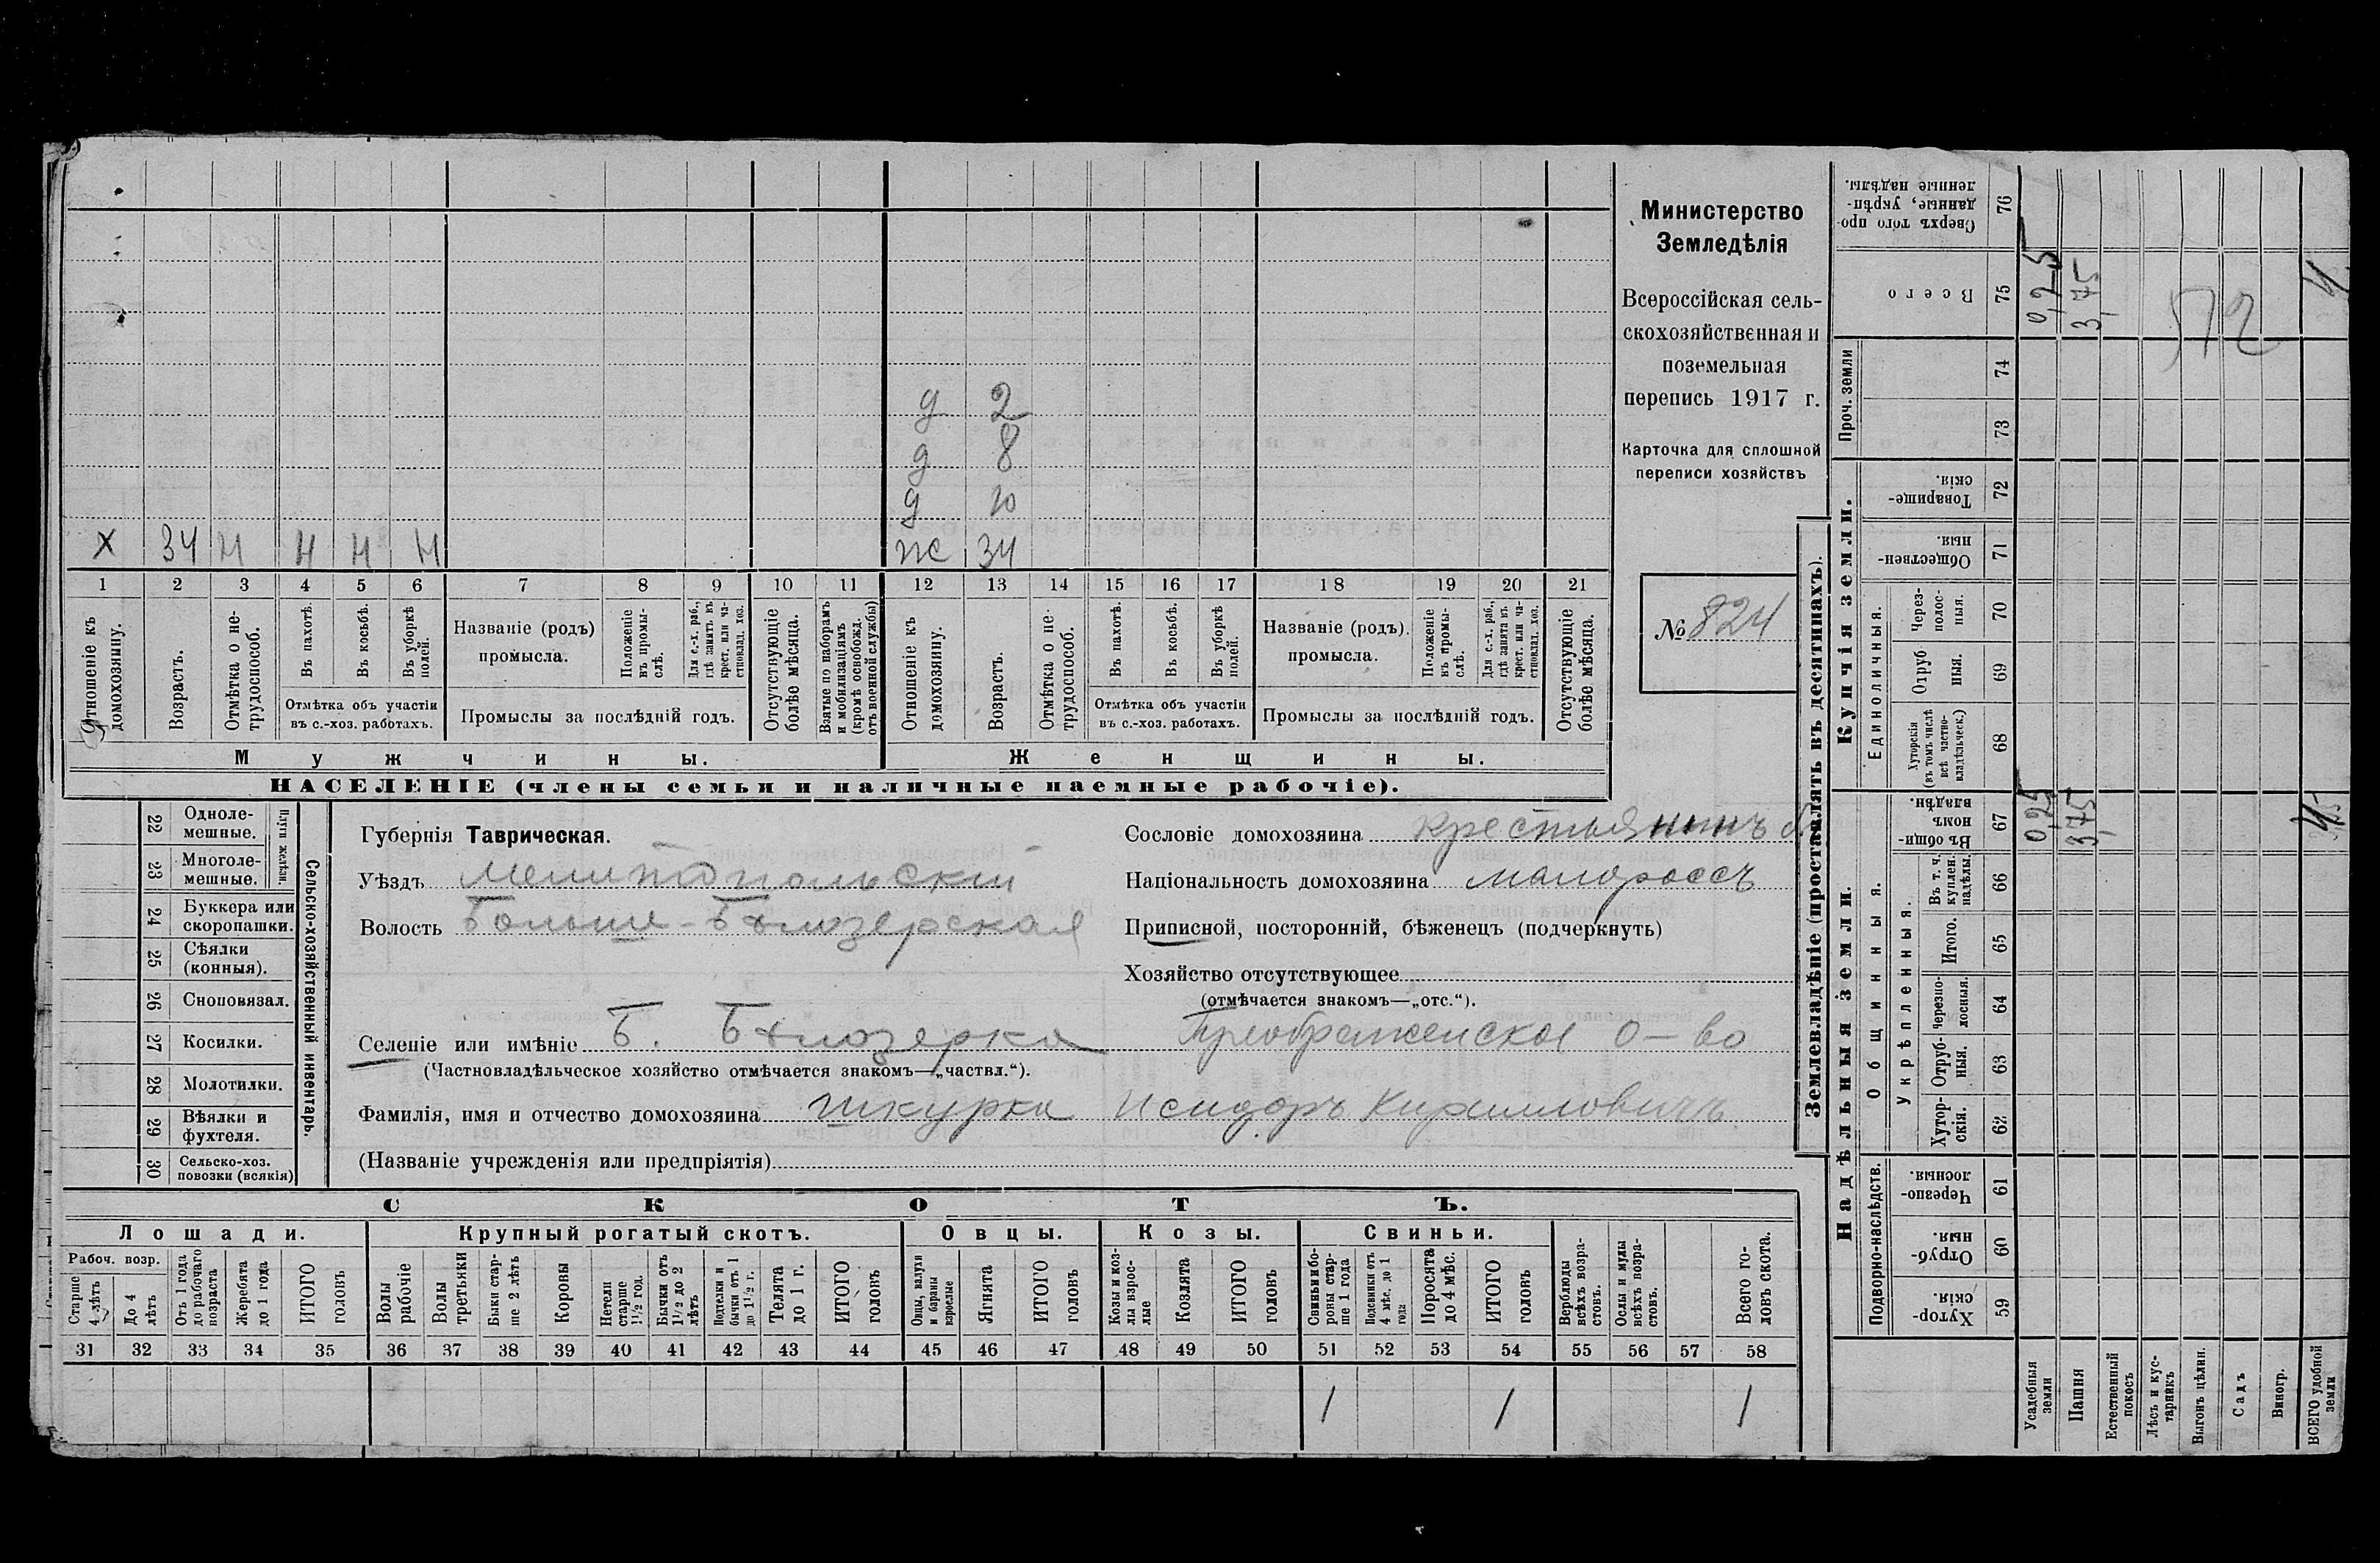 Министерство
Земледѣлія
Всероссійская сель-
скохозяйственная и
поземельная
перепись 1917 г.
Карточка для сплошной
переписи хозяйствъ
№ 824
д 2
д 8
д 10
Х 34 Н Н Н Н ж 34
1 2 3 4 5 6 7 8 9 10 11 12 13 14 15 16 17 18 19 20 21
Отношеніе къ домохозяину.
Возрастъ.
Отмѣтка о не-трудоспособ.
Въ пахотѣ.
Въ косьбѣ.
Въ уборкѣ полей.
Отмѣтка объ участіи
въ с.-хоз. работахъ.
Названіе (родъ)
промысла.
Положеніе въ промы-слѣ.
Для с.-х. раб., гдѣ занятъ въ крест. или ча-стновлад. хоз.
Промыслы за послѣдній годъ.
Отсутствующіе болѣе мѣсяца.
Взятые по наборамъ и мобилизаціямъ (кромѣ освобожд. отъ военной службы)
Отношеніе къ домохозяину.
Возрастъ.
Отмѣтка о не-трудоспособ.
Въ пахотѣ.
Въ косьбѣ.
Въ уборкѣ полей.
Отмѣтка объ участіи
въ с.-хоз. работахъ.
Названіе (родъ).
промысла.
Положеніе въ промы-слѣ.
Для с.-х. раб., гдѣ занята въ крест. или ча-стновлад. хоз.
Промыслы за послѣдній годъ.
Отсутствующіе болѣе мѣсяца.
Мужчины. Женщины.
НАСЕЛЕНІЕ (члены семьи и наличные наемные рабочіе).
Сельско-хозяйственный инвентарь.
Плуги желѣзн.
22 Одноле-мешные.
23 Многоле-мешные.
24 Буккера или скоропашки.
25 Сѣялки (конныя).
26 Сноповязал.
27 Косилки.
28 Молотилки.
29 Вѣялки и фухтеля.
30 Сельско-хоз. повозки (всякія)
Губернія Таврическая.
Уѣздъ Мелитопольскій
Волость Больше-Бѣлозерская
Селеніе или имѣніе Б. Бѣлозерка Преображенское о-во
(Частновладѣльческое хозяйство отмѣчается знакомъ—„частвл.“).
Фамилія, имя и отчество домохозяина Шкурка Исидоръ Кирилловичъ
(Названіе учрежденія или предпріятія)
Сословіе домохозяина крестьянинъ
Національность домохозяина малороссъ
Приписной, посторонній, бѣженецъ (подчеркнуть)
Хозяйство отсутствующее
(отмѣчается знакомъ—„отс.“).
СКОТЪ.
Лошади. Крупный рогатый скотъ. Овцы. Козы. Свиньи.
Рабоч. возр.
Старше 4 лѣтъ
До 4 лѣтъ
Отъ 1 года до рабочаго возраста
Жеребята до 1 года
ИТОГО головъ
Волы рабочіе
Волы третьяки
Быки стар-ше 2 лѣтъ
Коровы
Нетели старше 1½ год.
Бычки отъ 1½ до 2 лѣтъ
Подтелки и бычки отъ 1 до 1½ г.
Телята до 1 г.
ИТОГО головъ
Овцы, валухи и бараны взрослые
Ягнята
ИТОГО головъ
Козы и коз-лы взрос-лые
Козлята
ИТОГО головъ
Свиньи и бо-ровы стар-ше 1 года
Подсвинки отъ 4 мѣс. до 1 года
Поросята до 4 мѣс.
ИТОГО головъ
Верблюды всѣхъ возра-стовъ.
Ослы и мулы всѣхъ возра-стовъ.
Всего го-ловъ скота.
31 32 33 34 35 36 37 38 39 40 41 42 43 44 45 46 47 48 49 50 51 52 53 54 55 56 57 58
1 1 1
Землевладѣніе (проставлять въ десятинахъ).
Надѣльныя земли. Купчія земли. Проч. земли
Подворно-наслѣдств. Общинныя. Единоличныя.
Укрѣпленныя.
Хутор-скія. 59
Отруб-ныя. 60
Черезпо-лосныя. 61
Хутор-скія. 62
Отруб-ныя. 63
Черезпо-лосныя. 64
Итого. 65
Въ т. ч. куплен. надѣлы. 66
Въ общи-номъ владѣн. 67
Хуторскія (въ томъ числѣ всѣ частно-владѣльческ.) 68
Отруб-ныя. 69
Через-полос-ныя. 70
Обществен-ныя. 71
Товарище-скія. 72
73
74
Всего 75
Сверхъ того про-данные, укрѣп-ленные надѣлы. 76
Усадебныя земли 0,25 0,25
Пашня 3,75 3,75
Естественный покосъ
Лѣсъ и кус-тарникъ
Выгонъ цѣлин.
Садъ
Виногр.
ВСЕГО удобной земли 4
572